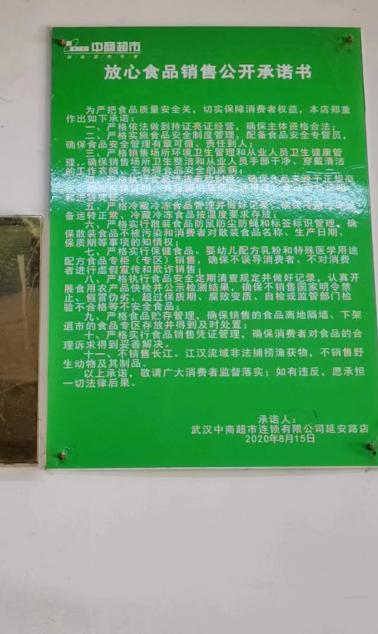 中商超市
放心食品销售公开承诺书
为严把食品质量安全关，切实保障消费者权益，本店郑重
作出如下承诺：
一、严格依法做到持证亮证经营，确保主体资格合法；
二、严格实施食品安全制度管理，配备食品安全专管员，
确保食品安全管理有章可循、责任到人；
三、严格销售场所环境卫生管理和从业人员卫生健康管
理，确保销售场所卫生整洁和从业人员手部干净、穿戴清洁
的工作衣帽、无有碍食品安全的疾病；
五、严格冷藏冷冻食品管理并做好记录，确保冷藏冷冻设
备运转正常，冷藏冷冻食品按温度要求存放；
六、严格实行散装食品防鼠防尘防蝇和标签标识管理，确
保散装食品不被污染和消费者对散装食品名称、生产日期、
保质期等事项的知情权；
七、严格实行保健食品、婴幼儿配方乳粉和特殊医学用途
配方食品专柜（专区）销售，确保不误导消费者、不对消费
者进行虚假宣传和欺诈销售；
八、严格执行食品安全定期清查规定并做好记录，认真开
展食用农产品快检并公示检测结果，确保不销售国家明令禁
止、假冒伪劣、超过保质期、腐败变质、自检或监管部门检
验不合格等不安全食品；
九、严格食品贮存管理，确保销售的食品离地隔墙、下架
退市的食品专区存放并得到及时处置；
十、严格实行食品销售凭证管理，确保消费者对食品的合
理诉求得到妥善解决。
十一、不销售长江、江汉流域非法捕捞渔获物，不销售野
生动物及其制品。
以上承诺，敬请广大消费者监督落实；如有违反，愿承担
一切法律后果。
承诺人：
武汉中商超市连锁有限公司延安路店
2020年8月15日